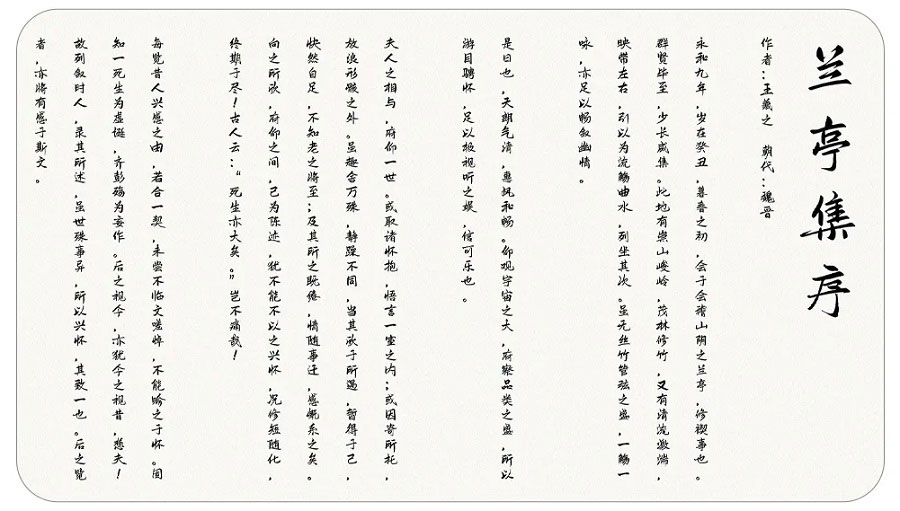 兰亭集序
作者：王羲之　朝代：魏晋
永和九年，岁在癸丑，暮春之初，会于会稽山阴之兰亭，修禊事也。
群贤毕至，少长咸集。此地有崇山峻岭，茂林修竹，又有清流激湍，
映带左右，引以为流觞曲水，列坐其次。虽无丝竹管弦之盛，一觞一
咏，亦足以畅叙幽情。
是日也，天朗气清，惠风和畅。仰观宇宙之大，俯察品类之盛，所以
游目骋怀，足以极视听之娱，信可乐也。
夫人之相与，俯仰一世。或取诸怀抱，悟言一室之内；或因寄所托，
放浪形骸之外。虽趣舍万殊，静躁不同，当其欣于所遇，暂得于己，
快然自足，不知老之将至；及其所之既倦，情随事迁，感慨系之矣。
向之所欣，俯仰之间，已为陈迹，犹不能不以之兴怀，况修短随化，
终期于尽！古人云：“死生亦大矣。”岂不痛哉！
每览昔人兴感之由，若合一契，未尝不临文嗟悼，不能喻之于怀。固
知一死生为虚诞，齐彭殇为妄作。后之视今，亦犹今之视昔，悲夫！
故列叙时人，录其所述，虽世殊事异，所以兴怀，其致一也。后之览
者，亦将有感于斯文。